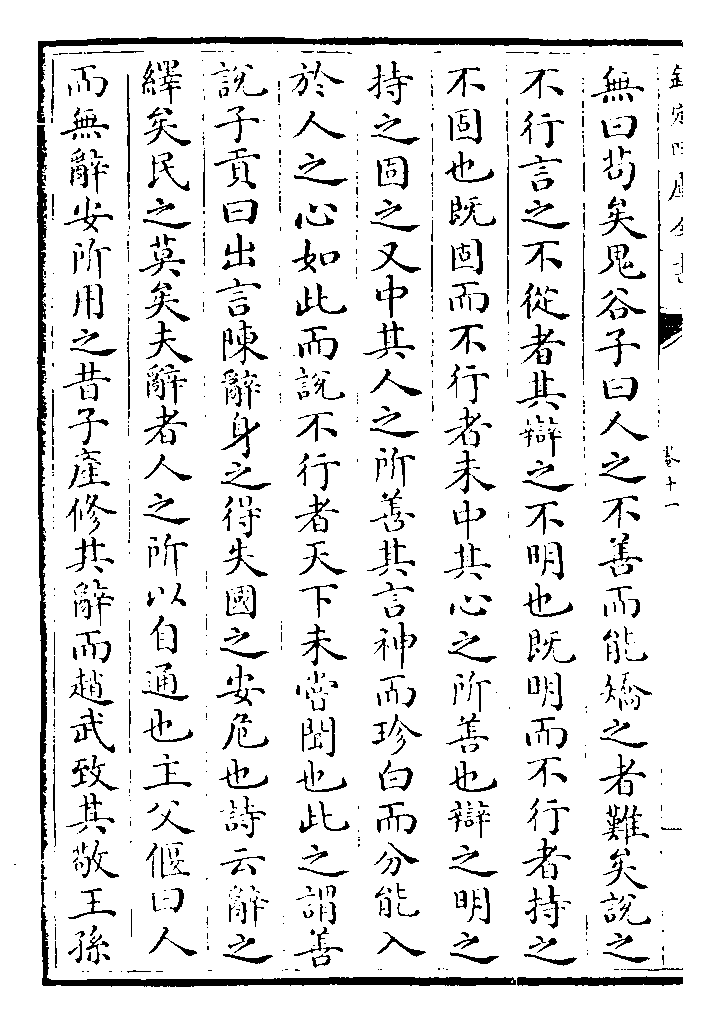 欽定四庫全書
卷十一
無曰茍矣鬼谷子曰人之不善而能矯之者難矣說之
不行言之不從者其辯之不明也既明而不行者持之
不固也既固而不行者未中其心之所善也辯之明之
持之固之又中其人之所善其言神而珍白而分能入
於人之心如此而說不行者天下未嘗聞也此之謂善
說子貢曰出言陳辭身之得失國之安危也詩云辭之
繹矣民之莫矣夫辭者人之所以自通也主父偃曰人
而無辭安所用之昔子產修其辭而趙武致其敬王孫